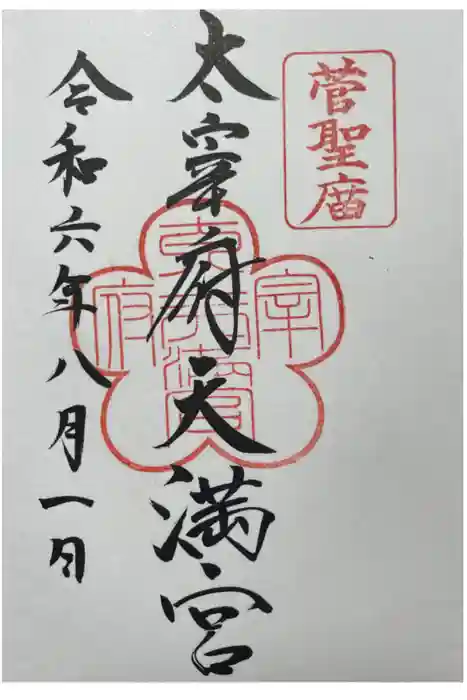 菅聖廟
太宰府天満宮
令和六年八月一日